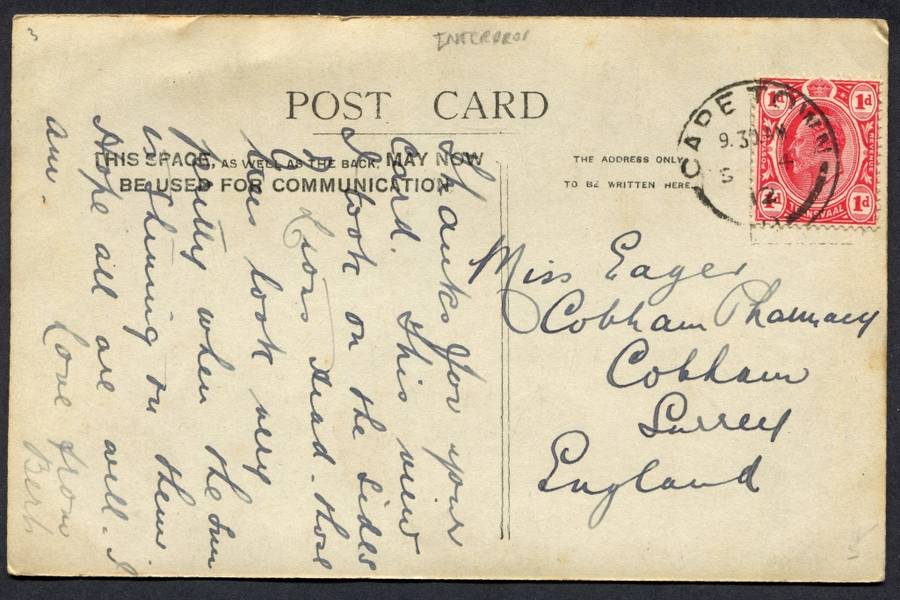 INTERPROV
3
POST CARD
THIS SPACE, AS WELL AS THE BACK, MAY NOW
BE USED FOR COMMUNICATION
THE ADDRESS ONLY
TO BE WRITTEN HERE.
CAPE TOWN
9.30
4
12
1d 1d
POSTAGE REVENUE
1d 1d
TRANSVAAL
Thanks for your
Card. This view
I took on the sides
of Lions Head. those
trees look very
pretty when the Sun
is shining on them
Hope all are well. I
am. Love from
Bert
Miss Eager
Cobham Pharmacy
Cobham
Surrey
England